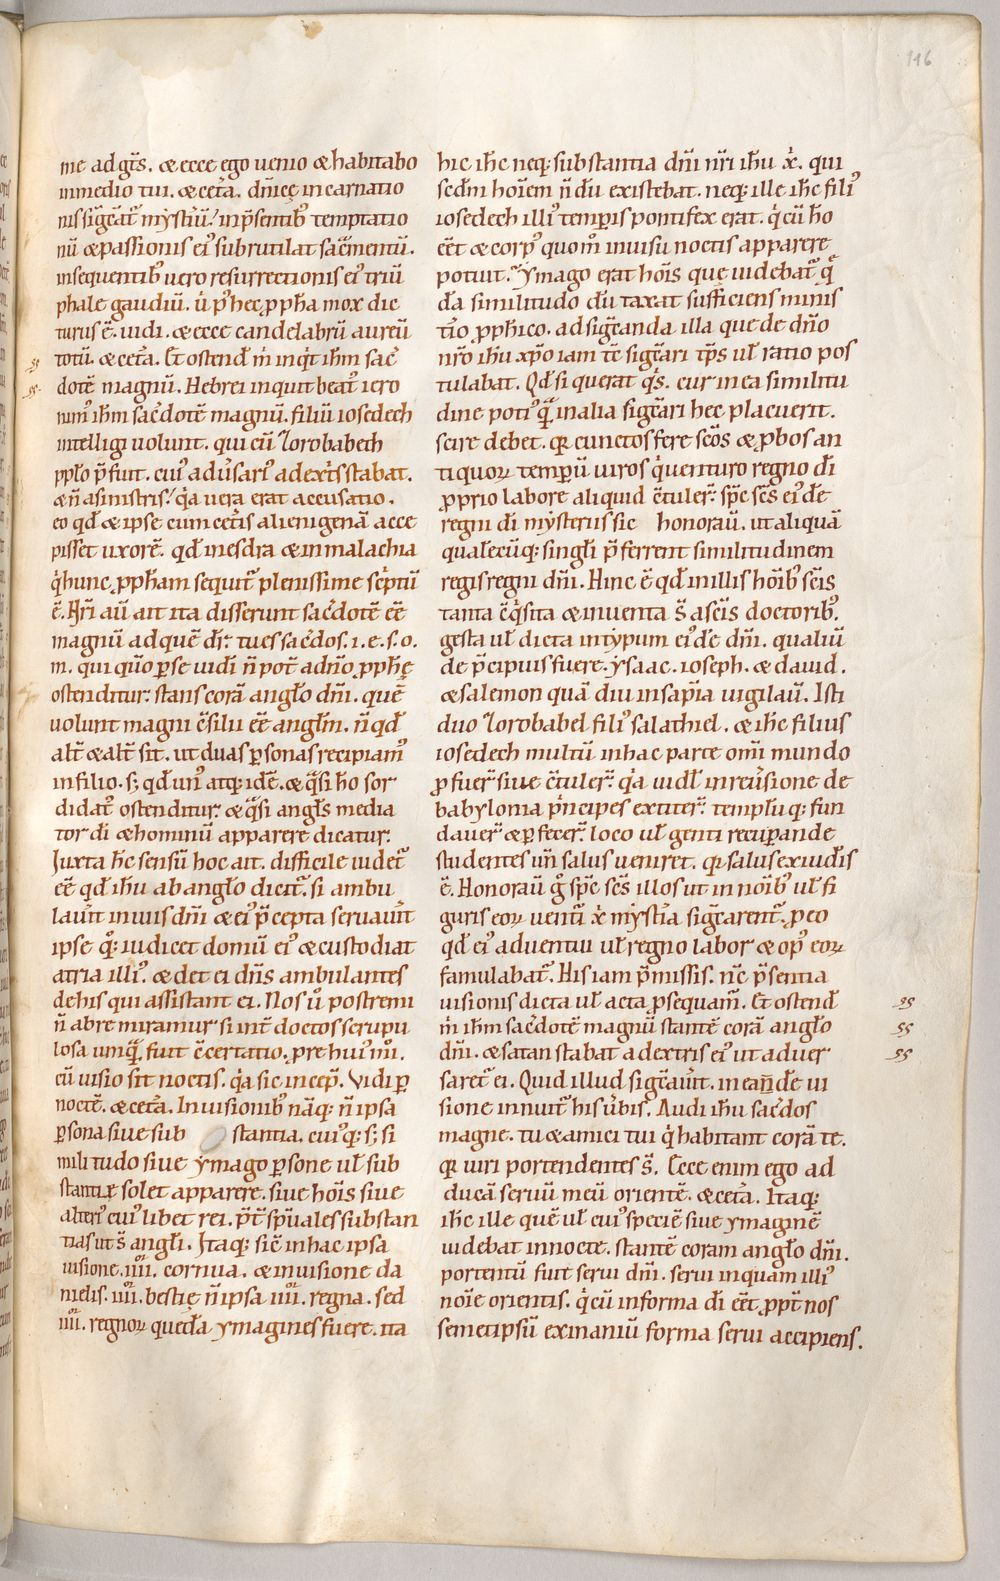 116
me ad gt̄s. & ecce ego uenio & habitabo
in medio tui. & cet̄a. dn̄icę incarnatio
nis sig̅cat̄ myst̄iū. in p̄sentib; temptatio
nū & passionis ei᾽ subrutilat sac̄mentū.
insequentib; uero resurrectionis ei᾽ triū
phale gaudiū. ū p᾽ hec ꝓph̄a mox dic
turus ē. uidi. & ecce candelabrū aureū
totū. & cet̄a. Et ostend̄ m̄ inqͥt ih̄m sac̄
dotē magnū. Hebrei inquit beat᾽ iero
nim᾽ ih̄m sac̄dotē magnū. filiū iosedech
intelligi uolunt. qui cū zorobabech
pp̄lo p̄fuit. cui᾽ adūsari᾽ a dext̄s stabat.
& n̄ a sinistris. qͥa uera erat accusatio.
eo qd̄ & ipse cum cet̄is alienigenā acce
pisset uxorē. qd̄ in esdra & in malachia
qͥ hunc ꝓph̄am sequit̄ plenissime sc̄ptū
ē. Nr̄i aū aut ita disserunt sac̄dotē ēē
magnū ad quē dr̄. tu es sac̄dos. i. e. s. o.
m. qui qm̄o ꝑ se uidi n̄ pot̄ a dn̄o ꝓph̄ę
ostenditur. stans corā angl̄o dn̄i. quē
uolunt magni c̄silii ēē angl̄m. n̄ qd̄
alt̄ & alt̄ sit. ut duas ꝑsonas recipiam᾽
in filio. s; qd̄ un᾽ atq; idē. & qͣsi h̄o sor
didat᾽ ostenditur. & qͣsi angl̄s media
tor di & hominū apparere dicatur.
Iuxta h̄c sensū hoc ait. difficile uidet̄
ēē qd̄ ih̄u ab angl̄o dicit̄. si ambu
lau̅it in uiis dn̄i & ei᾽ p̄cepta seruau̅it
ipse qͦ; iudicet domū ei᾽ & custodiat
atria illi᾽. & det ei dn̄s ambulantes
de his qui assistant ei. Nos ů postremi
n̄ abremiramur si int̄ doctos scrupu
losa umqͣ fuit c̄certatio. ꝓ re hui᾽mͦi.
cū uisio sit noctis. qͥa sic incep̄. Vidi ꝑ
noctē. & cet̄a. In uisionib; nāq; n̄ ipsa
ꝑsona siue sub stantia. cui᾽q; s; si
militudo siue ymago ꝑsone ul̄ sub
stantię solet apparere. siue hoīs siue
alteri᾽ cui᾽libet rei. p̄t̄ sp̄uales substan
tias ut s̄ angl̄i. Itaq; sic̄ in hac ipsa
uisione .iiii. cornua. & in uisione da
nielis .iiii. bestię n̄ ipsa .iiii. regna. sed
.iiii. regnoꝝ quęda ymagines fuere. ita
hic ih̄c neq; substantia dn̄i nr̄i ih̄u x̄. qui
sed̄m hoīem n̄ dū existebat. neq; ille ih̄c fili᾽
iosedech illi᾽ temp̄is pontifex erat. qͥ cū h̄o
ēēt & corp᾽ quom̄ in uisu noctis apparere
potuit. Ymago erat hoīs quę uidebat̄ qͣ
da similitudo dū taxat sufficiens minis
t̄io ꝓph̄ico. ad sig̅canda illa que de dn̄o
nr̄o ih̄u xp̄o iam tē sig̅cari tp̄s ul̄ ratio pos
tulabat. Qd̄ si querat qͥs. cur in ea similitu
dine poti᾽ qͣ in alia sig̅cari hec placuerit.
scire debet. qꝛ cunctos fere sc̄os & ꝓbos an
tiquoꝝ temꝑū uiros qͥ uenturo regno di
ꝓprio labore aliquid c̄tuler̄. sp̄c sc̄s ei᾽ de
regni di mysteriis sic honorau̅. ut aliquā
qualecūq; singl̄i p̄ferrent similitudinem
regis regni dn̄i. Hinc ē qd̄ in illis hoīb; sc̄is
tanta c̄qͥsita & inuenta s̄ a sc̄is doctorib;
gesta ul̄ dicta in typum ei᾽de dn̄i. qualiū
de p̄cipuis fuere. ysaac. ioseph. & dauid.
& salemon quā diu in sap̄ia uigilau̅. Isti
duo zorobabel fili᾽ salathiel. & ih̄c filius
iosedech multū in hac parte omi mundo
ꝓfuer̄ siue c̄tuler̄. qͥa uidl̄ in reu̅sione de
babylonia pͥncipes extiter̄. templūq; fun
dauer̄ & ꝑfecer̄. loco ul̄ genti reciꝑande
studentes un̄ salus ueniret. qꝛ salus ex iud̄is
ē. Honorau̅ gͦ sp̄c sc̄s illos ut in noīb; ul̄ fi
guris eoꝝ uentū x̄ mysīia sig̅carent̄. ꝓ eo
qd̄ ei᾽ aduentui ul̄ regno labor & op᾽ eoꝝ
famulabat̄. His iam p̄missis. nc̄ p̄sentia
uisionis dicta ul̄ acta ꝓsequam̄. Et ostend̄
m̄ ih̄m sac̄dotē magnū stantē corā angl̄o
dn̄i. & satan stabat a dextris ei᾽ ut aduer
saret̄ ei. Quid illud sig̅cau̅it. in ean̄de ui
sione innuit̄ his u̅bis. Audi ih̄u sac̄dos
magne. tu & amici tui qͥ habitant corā te.
qꝛ uiri portendentes s̄. Ecce enim ego ad
ducā seruū meū orientē. & cet̄a. Itaq;
ih̄c ille quē ul̄ cui᾽ speciē siue ymaginē
uidebat in nocte. stantē coram angl̄o dn̄i.
portentū fuit serui dn̄i. serui inquam illi᾽
noīe orientis. qͥ cū in forma di ēēt ꝓpt̄ nos
semetipsū exinaniū forma serui accipiens.